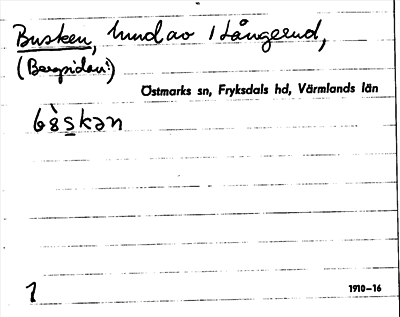 Busken, hmd av 1 Långerud,
(Bergsidan!)
Östmarks sn, Fryksdals hd, Värmlands län
1
1910-16